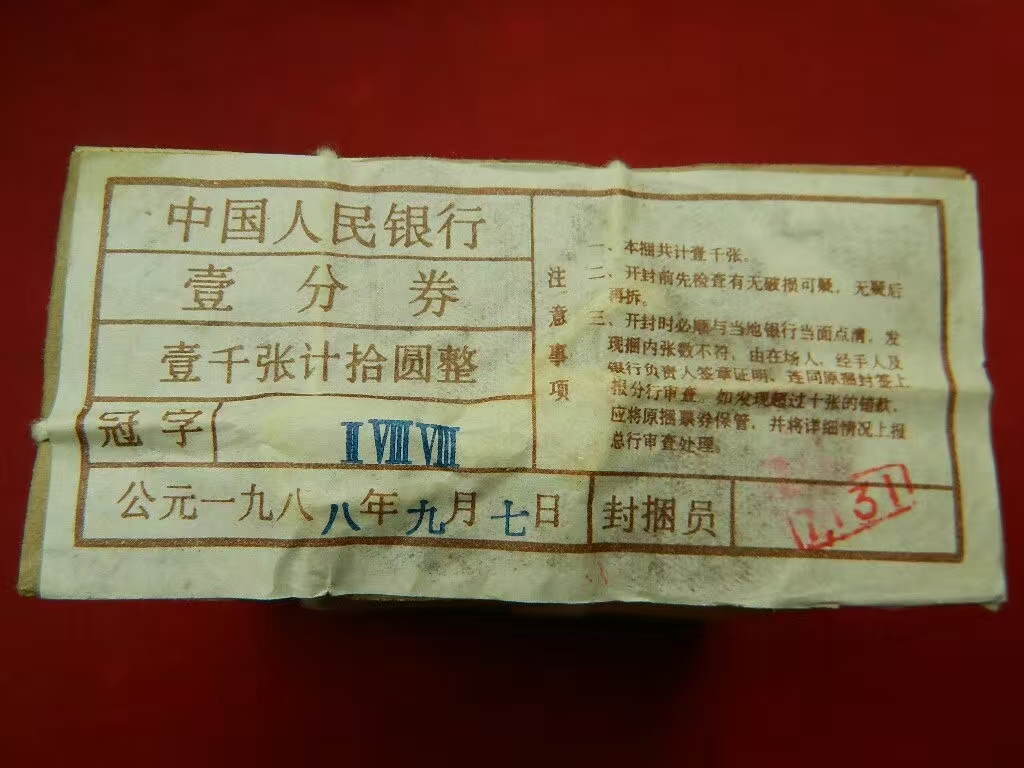 中国人民银行
壹分券
壹千张计拾圆整
冠字
ⅡⅧⅧ
公元一九八八年九月七日
封捆员
注意事项
一、本捆共计壹千张。
二、开封前先检查有无破损可疑，无疑后
再拆。
三、开封时必顺与当地银行当面点清，发
现捆内张数不符，由在场人、经手人及
银行负责人签章证明，连同原捆封签上
报分行审查。如发现超过十张的错款，
应将原捆票券保管，并将详细情况上报
总行审查处理。